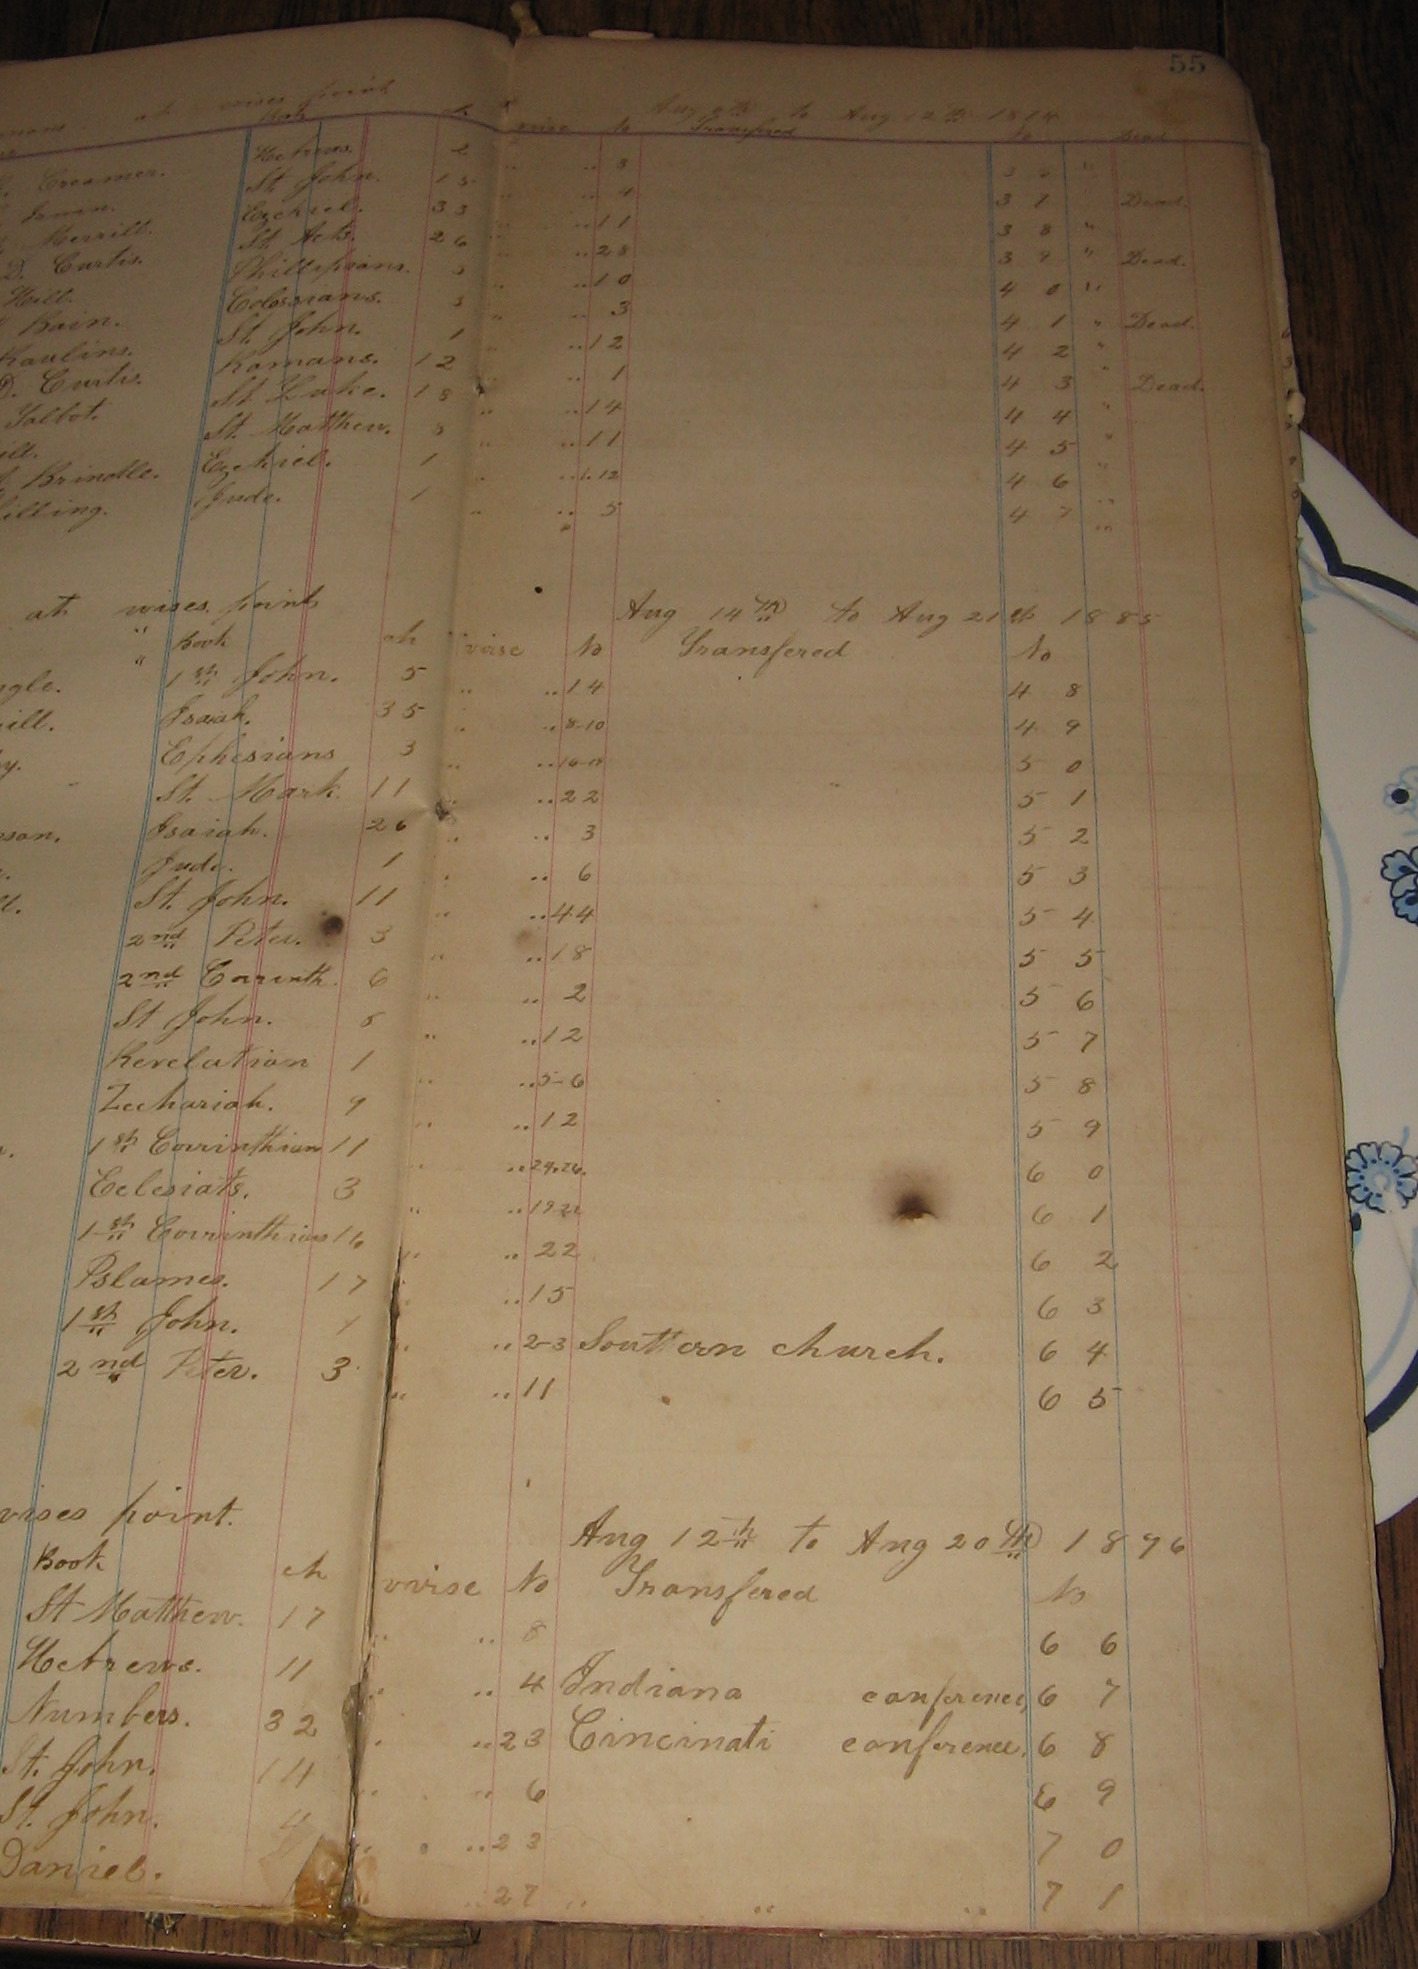 55
at wises point Aug to Aug 12th 18
Book ch verse No Transfered No Dead
Creamer. Hebrews. 2 .. 3 3 6 "
St. John. 15 .. 4 3 7 Dead.
Merrill. Ezekiel. 33 .. 11 3 8 "
D. Curtis. St. Acts. 26 .. 28 3 9 " Dead.
Hill. Phillipians. 3 .. 10 4 0 "
Bain. Colossians. 3 .. 3 4 1 " Dead.
Raulins. St. John. 1 .. 12 4 2 "
D. Curtis. Romans. 12 .. 1 4 3 " Dead.
Talbot. St. Luke. 18 .. 14 4 4 "
ill. St. Matthew. 3 .. 11 4 5 "
Brindle. Ezekiel. 1 .. 12 4 6 "
illing. Jude. 1 .. 5 4 7 "
at wises point Aug 14th to Aug 21st 1885
" Book ch verse No Transfered No
ngle. " 1st John. 5 .. 14 4 8
ill. Isaiah. 35 .. 8-10 4 9
y. Ephesians 3 .. 5 0
St. Mark 11 .. 22 5 1
son. Isaiah. 26 .. 3 5 2
Jude. 1 .. 6 5 3
ll. St. John. 11 .. 44 5 4
2nd Peter. 3 .. 18 5 5
2nd Corinth. 6 .. 2 5 6
St John. 8 .. 12 5 7
Revelation 1 .. 5-6 5 8
Zechariah. 9 .. 12 5 9
1st Corrinthian 11 .. 24.26. 6 0
Eclesiats. 3 .. 6 1
1st Corrinthians 16 .. 22 6 2
Pslames. 17 .. 15 6 3
1st John. .. 2-3 Southern church. 6 4
2nd Peter. 3 .. 11 6 5
wises point. Aug 12th to Aug 20th 1896
Book ch vvise No Transfered No
St Matthew. 17 .. 8 6 6
Hebrews. 11 .. 4 Indiana conference, 6 7
Numbers. 32 .. 23 Cincinati conference. 6 8
St. John. 14 .. 6 6 9
St. John. 4 .. 23 7 0
Daniel. .. 27 .. .. .. 7 1